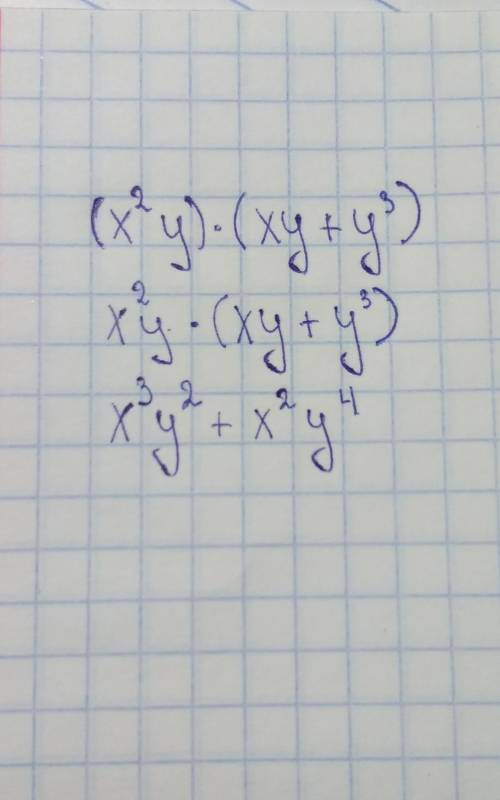 (x² y) · (xy + y³)
x²y · (xy + y³)
x³y² + x² y⁴